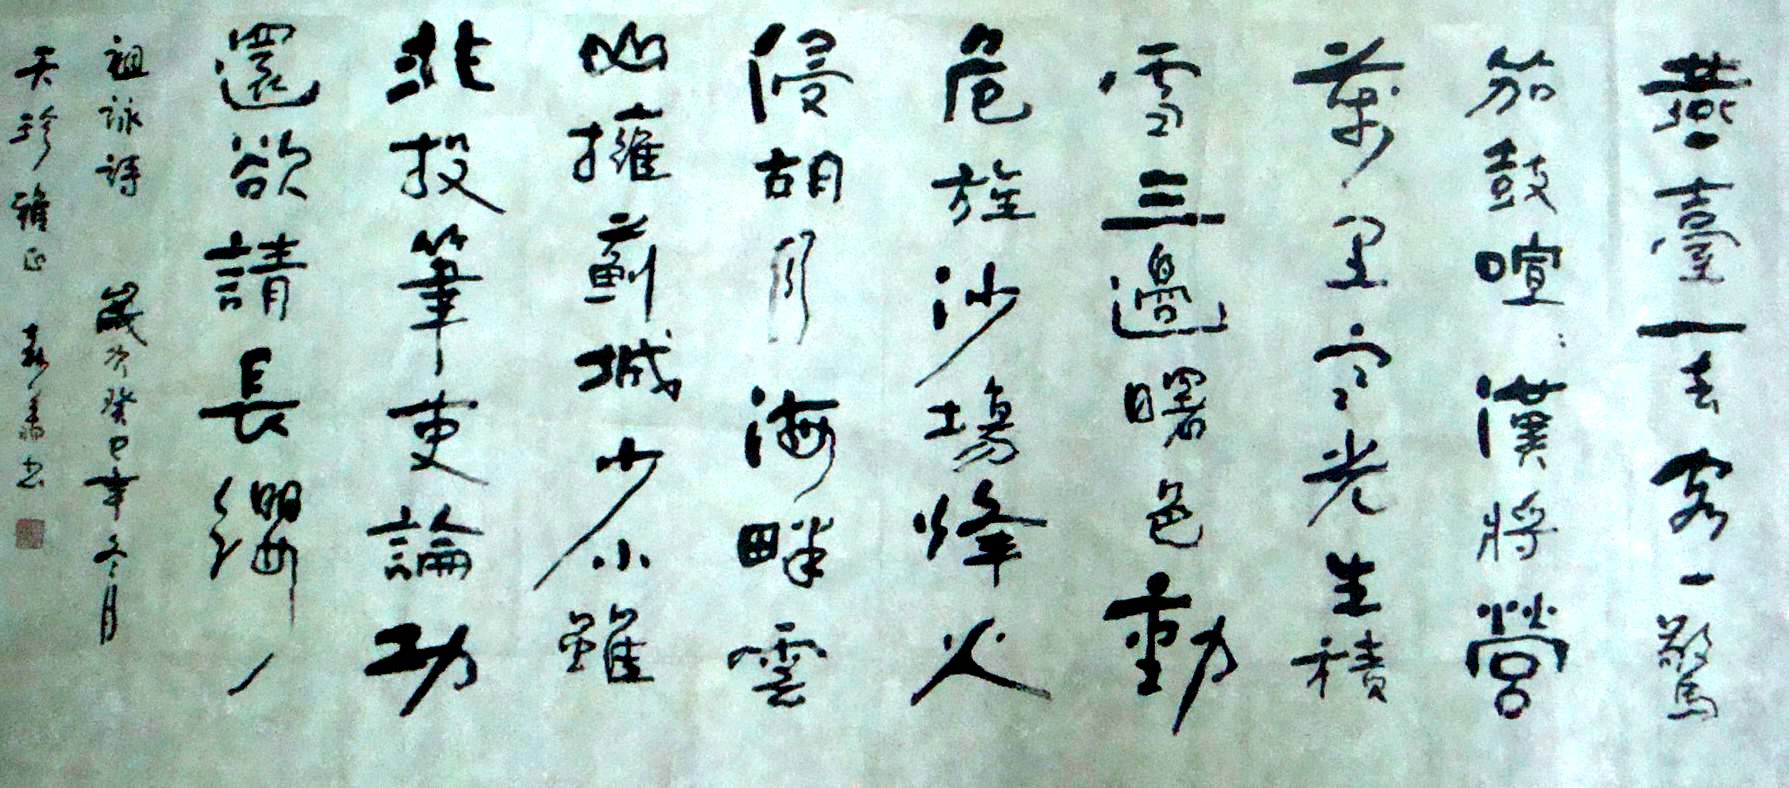 燕臺一去客心驚
笳鼓喧〻漢將營
萬里寒光生積
雪三邊曙色動
危旌沙場烽火
侵胡月海畔雲
山擁薊城少小雖
非投筆吏論功
還欲請長纓
祖詠詩 歲次癸巳年冬月
天珍雅正 書